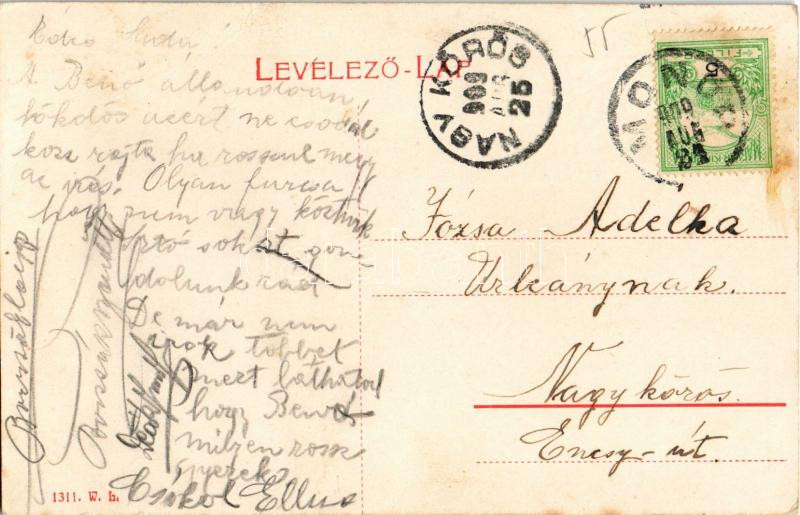 LEVELEZŐ-LAP
NAGY KŐRÖS
909 AUG 25
MONOR
909
AUG
5
FIL
55
Édes
A Benő állandóan
lökdös azért ne csodál
kozz rajta ha rosszul megy
az írás. Olyan furcsa
hogy nem vagy köztünk
sokat gon
dolunk rád
De már nem
írok többet
mert láthatod
hogy Benő
milyen rossz
gyerek
Csókol Ellus
Józsa Adelka
Urleánynak.
Nagykőrös.
Encsy-út.
1311. W. L.
darabanth